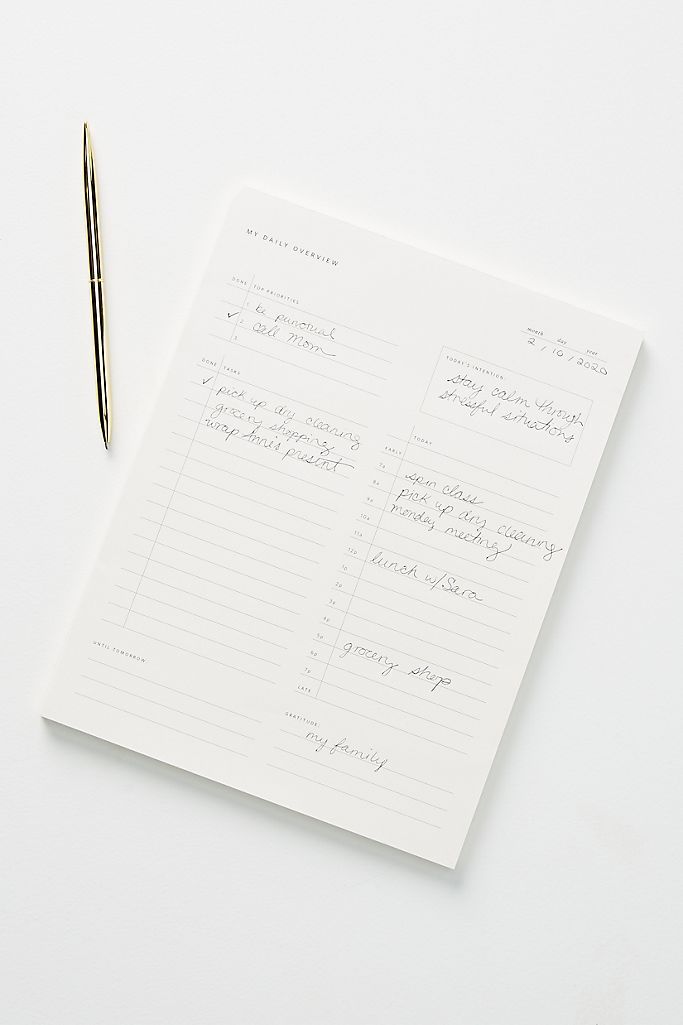 MY DAILY OVERVIEW
month day year
2 / 10 / 2020
DONE TOP PRIORITIES
1. be punctual
✓ 2. call Mom
3.
TODAY'S INTENTION:
stay calm through
stressful situations
DONE TASKS
✓ pick up dry cleaning
grocery shopping
wrap Ann's present
TODAY
EARLY
7a spin class
8a pick up dry cleaning
9a monday meeting
10a
11a
12p lunch w/Sara
1p
2p
3p
4p
5p grocery shop
6p
7p
LATE
UNTIL TOMORROW
GRATITUDE:
my family